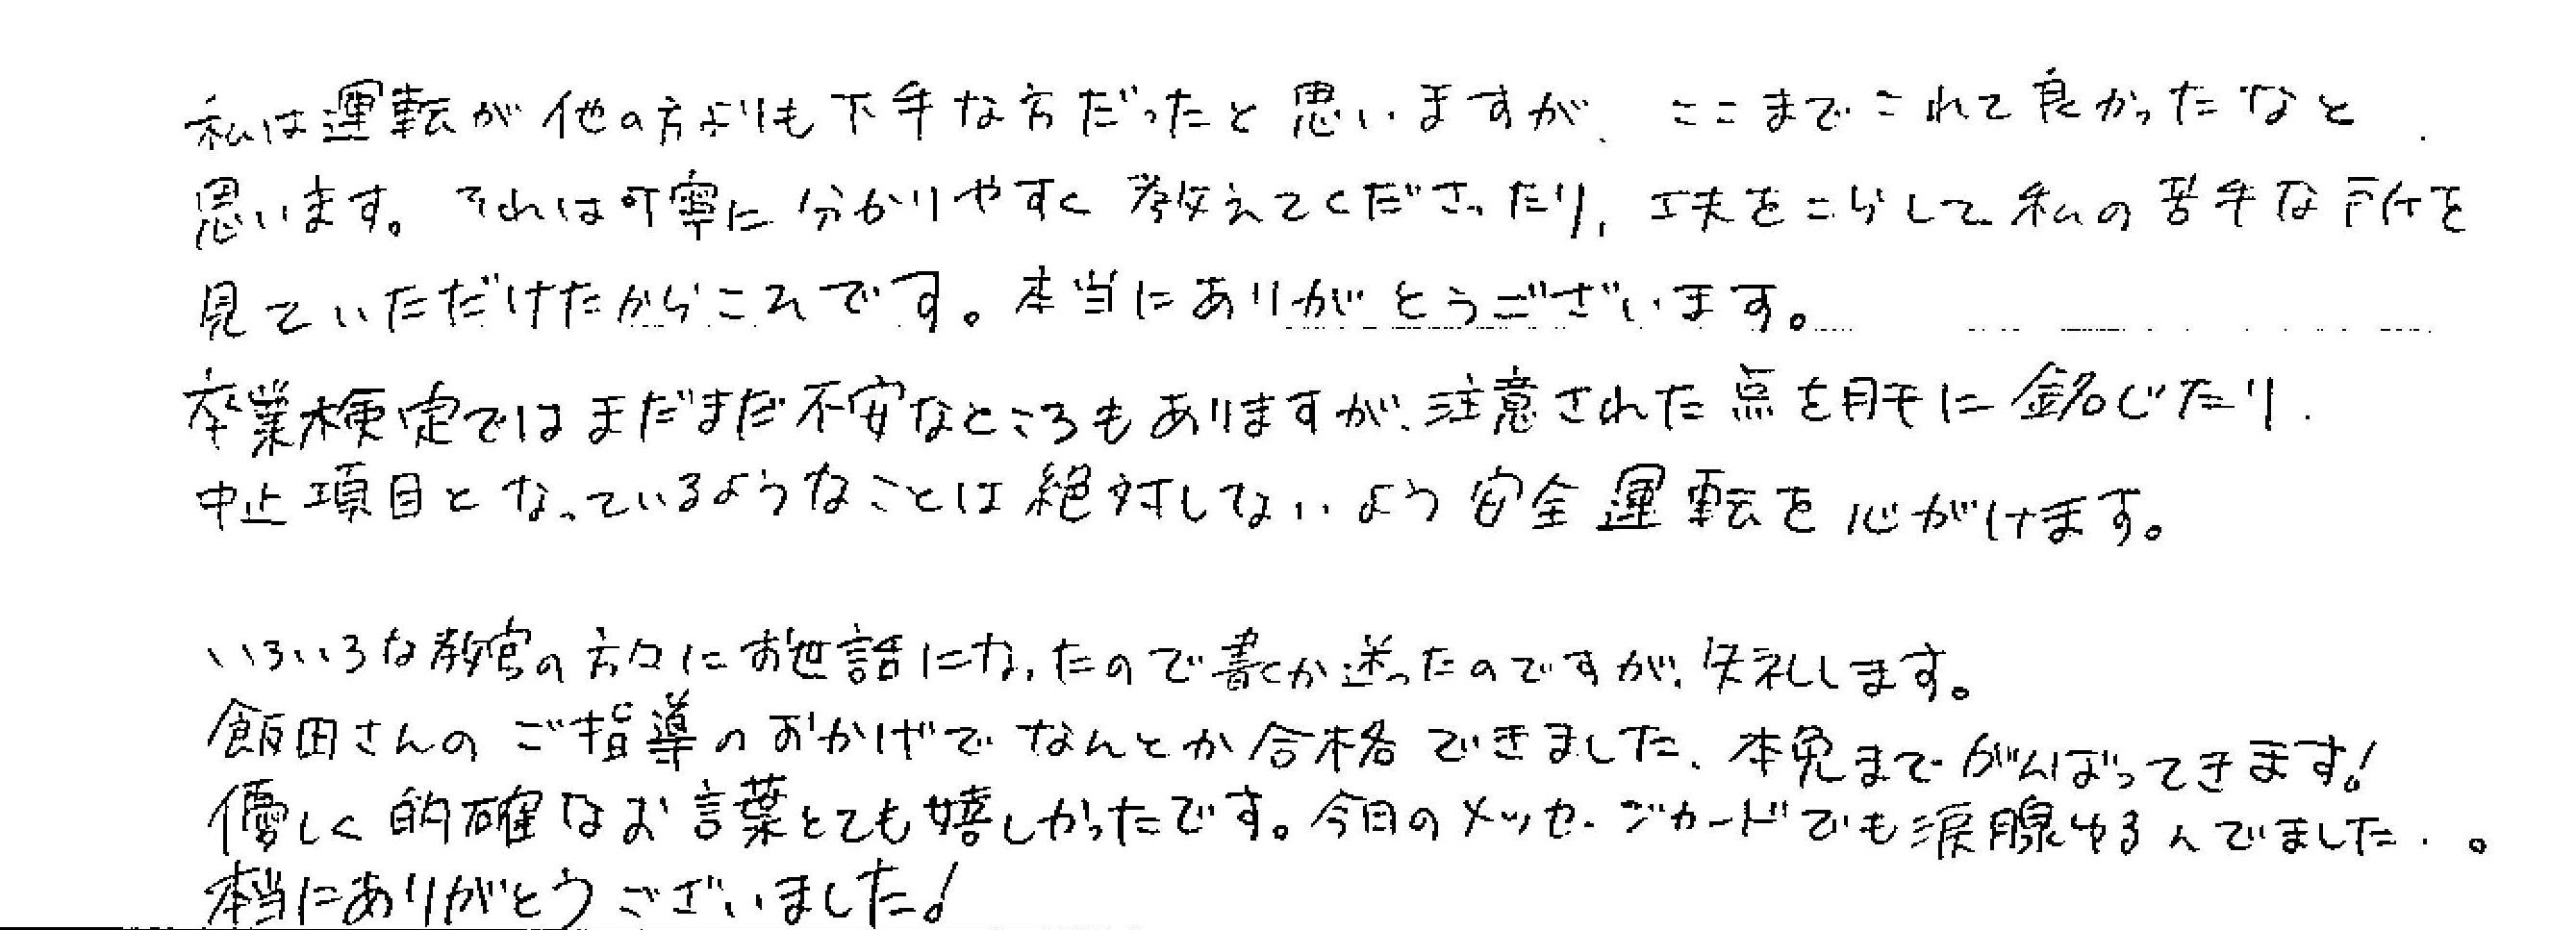 私は運転が他の方よりも下手な方だったと思いますが、ここまでこれて良かったなと
思います。それは丁寧に分かりやすく教えてくださったり、工夫をこらして私の苦手な所を
見ていただけたからこそです。本当にありがとうございます。
卒業検定ではまだまだ不安なところもありますが、注意された点を肝に銘じたり、
中止項目となっているようなことは絶対しないよう安全運転を心がけます。
いろいろな教官の方々にお世話になったので書くか迷ったのですが、失礼します。
飯田さんのご指導のおかげでなんとか合格できました、本免までがんばってきます!
優しく的確なお言葉とても嬉しかったです。今日のメッセージカードでも涙腺ゆるんでました..。
本当にありがとうございました!